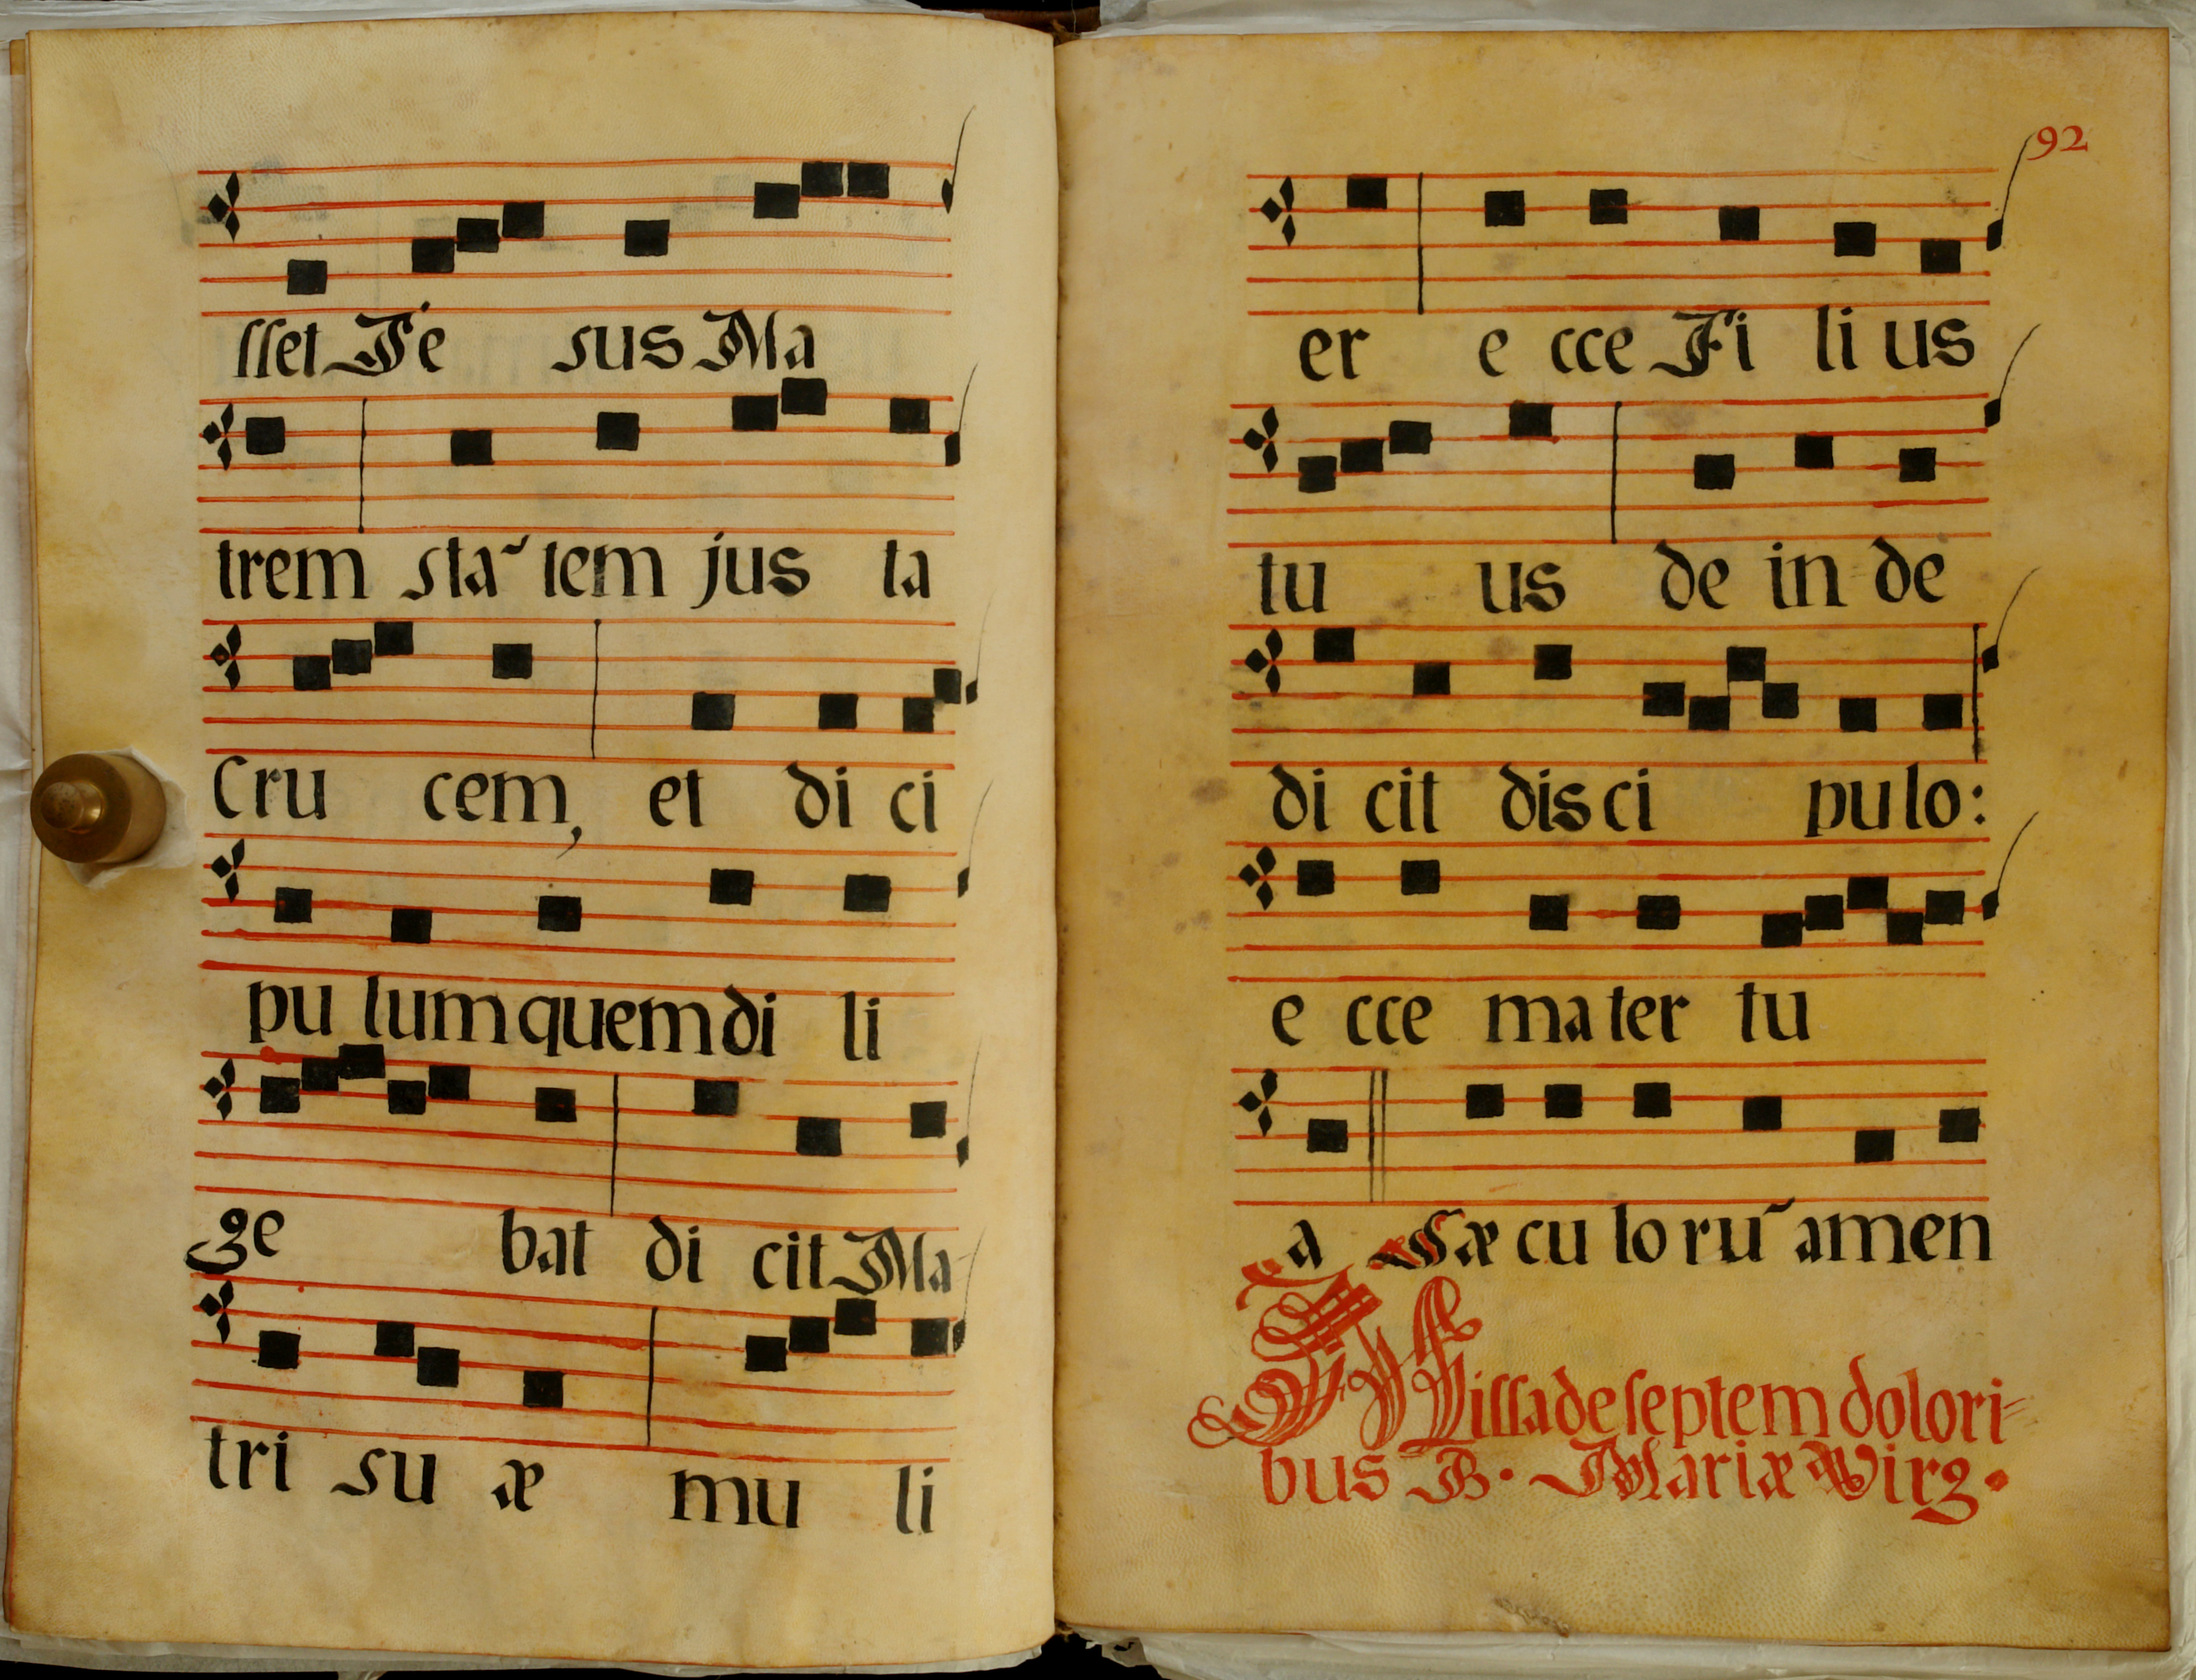 sset Je sus Ma
trem sta~ tem jus ta
Cru cem, et di ci
pu lum quem di li
ge bat di cit Ma
tri su æ mu li
92
er e cce Fi li us
tu us de in de
di cit dis ci pu lo:
e cce ma ter tu
a Sæ cu lo ru~ amen
Missa de septem dolori-
bus B. Mariæ Virg.